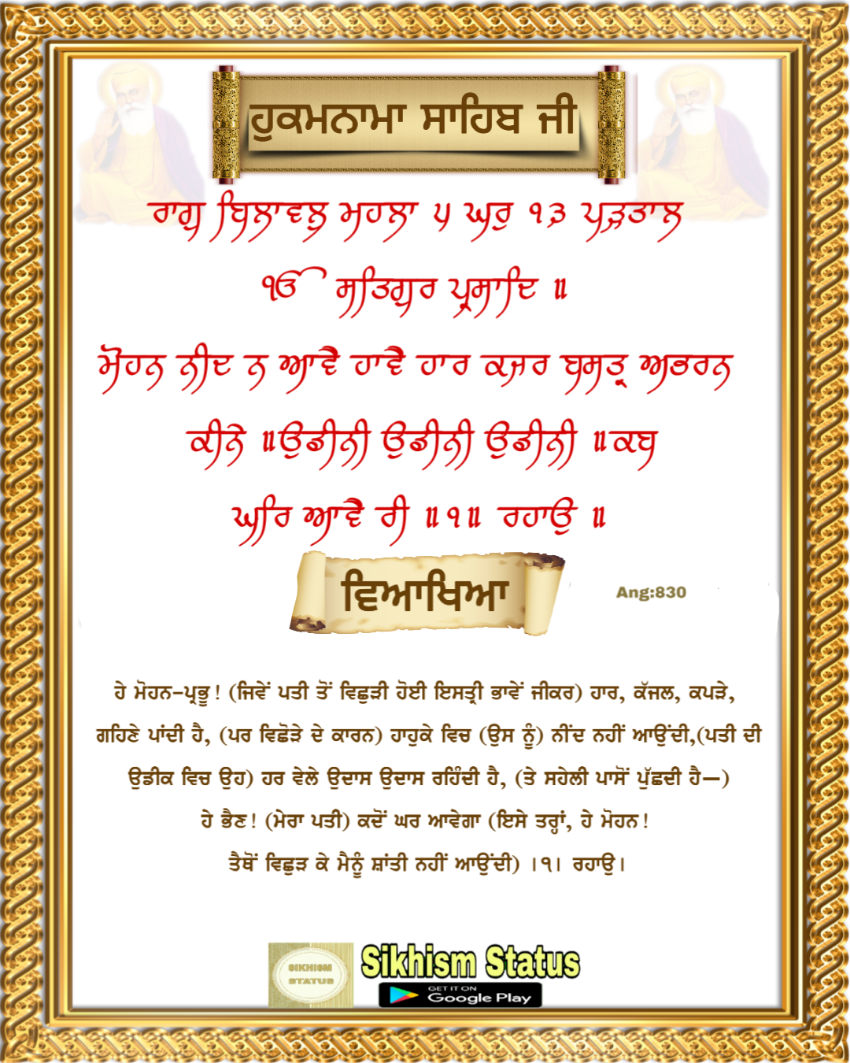 ਹੁਕਮਨਾਮਾ ਸਾਹਿਬ ਜੀ
ਰਾਗੁ ਬਿਲਾਵਲੁ ਮਹਲਾ ੫ ਘਰੁ ੧੩ ਪੜਤਾਲ
ੴ ਸਤਿਗੁਰ ਪ੍ਰਸਾਦਿ ॥
ਮੋਹਨ ਨੀਦ ਨ ਆਵੈ ਹਾਵੈ ਹਾਰ ਕਜਰ ਬਸਤ੍ਰ ਅਭਰਨ
ਕੀਨੇ ॥ਉਡੀਨੀ ਉਡੀਨੀ ਉਡੀਨੀ ॥ਕਬ
ਘਰਿ ਆਵੈ ਰੀ ॥੧॥ ਰਹਾਉ ॥
ਵਿਆਖਿਆ
Ang:830
ਹੇ ਮੋਹਨ-ਪ੍ਰਭੂ! (ਜਿਵੇਂ ਪਤੀ ਤੋਂ ਵਿਛੁੜੀ ਹੋਈ ਇਸਤ੍ਰੀ ਭਾਵੇਂ ਜੀਕਰ) ਹਾਰ, ਕੱਜਲ, ਕਪੜੇ,
ਗਹਿਣੇ ਪਾਂਦੀ ਹੈ, (ਪਰ ਵਿਛੋੜੇ ਦੇ ਕਾਰਨ) ਹਾਹੁਕੇ ਵਿਚ (ਉਸ ਨੂੰ) ਨੀਂਦ ਨਹੀਂ ਆਉਂਦੀ,(ਪਤੀ ਦੀ
ਉਡੀਕ ਵਿਚ ਉਹ) ਹਰ ਵੇਲੇ ਉਦਾਸ ਉਦਾਸ ਰਹਿੰਦੀ ਹੈ, (ਤੇ ਸਹੇਲੀ ਪਾਸੋਂ ਪੁੱਛਦੀ ਹੈ—)
ਹੇ ਭੈਣ! (ਮੇਰਾ ਪਤੀ) ਕਦੋਂ ਘਰ ਆਵੇਗਾ (ਇਸੇ ਤਰ੍ਹਾਂ, ਹੇ ਮੋਹਨ!
ਤੈਥੋਂ ਵਿਛੁੜ ਕੇ ਮੈਨੂੰ ਸ਼ਾਂਤੀ ਨਹੀਂ ਆਉਂਦੀ) ।੧। ਰਹਾਉ।
SIKHISM
STATUS
Sikhism Status
GET IT ON
Google Play